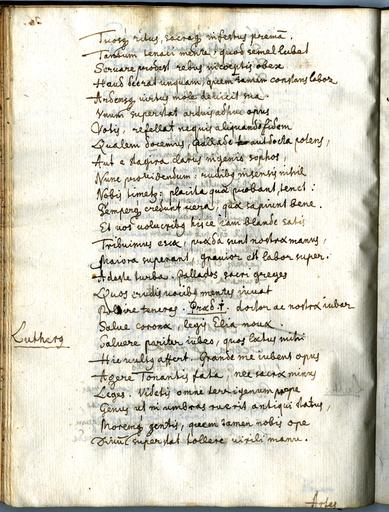 Tuosq; ritus, sacraq; infestus premā.
Tantum tenaci mente, quod semel lubet
Servare prodest rebus incoeptis obex
Haud deerat unquam, quem tamen constans labor
Ardensq; virtus mole deiicit sua.
Unum superstat arduū adhuc opus
Votis, refellat nequis aliquando fidem
Qualem docemus, Pallade docta potens,
Aut e Stagira clarus ingenii sophos,
Nunc providendum: rudibus ingeniis nihil
Nobis timetis: placita quae probant, tenet:
Semperq; credunt vera, quae sapiunt bene.
Et nos volucribus hisce iam blande satis
Tribuimus esca, praeda sunt nostrae manus,
Maiora superant, gravior est labor super.
Adeste turba Pallados sacri greges
Quos eruditis vocibus mentes iuvat
teneras: Praed. doctor ac nostrae iubar
Lutherq
Salve corona, legis Elia novae
Salvere pariter iubeo, quos laetus mihi
Hic nullus affert. Grande me iubent opus
Agere Tonantis fata, nec sacrae minus
Leges. Videtis omne terrigenum prope
Genus ut in umbras ruerit antiqui status,
Moremq; gentis, quem tamen nobis ope
Divum superstat tollere virili manu.